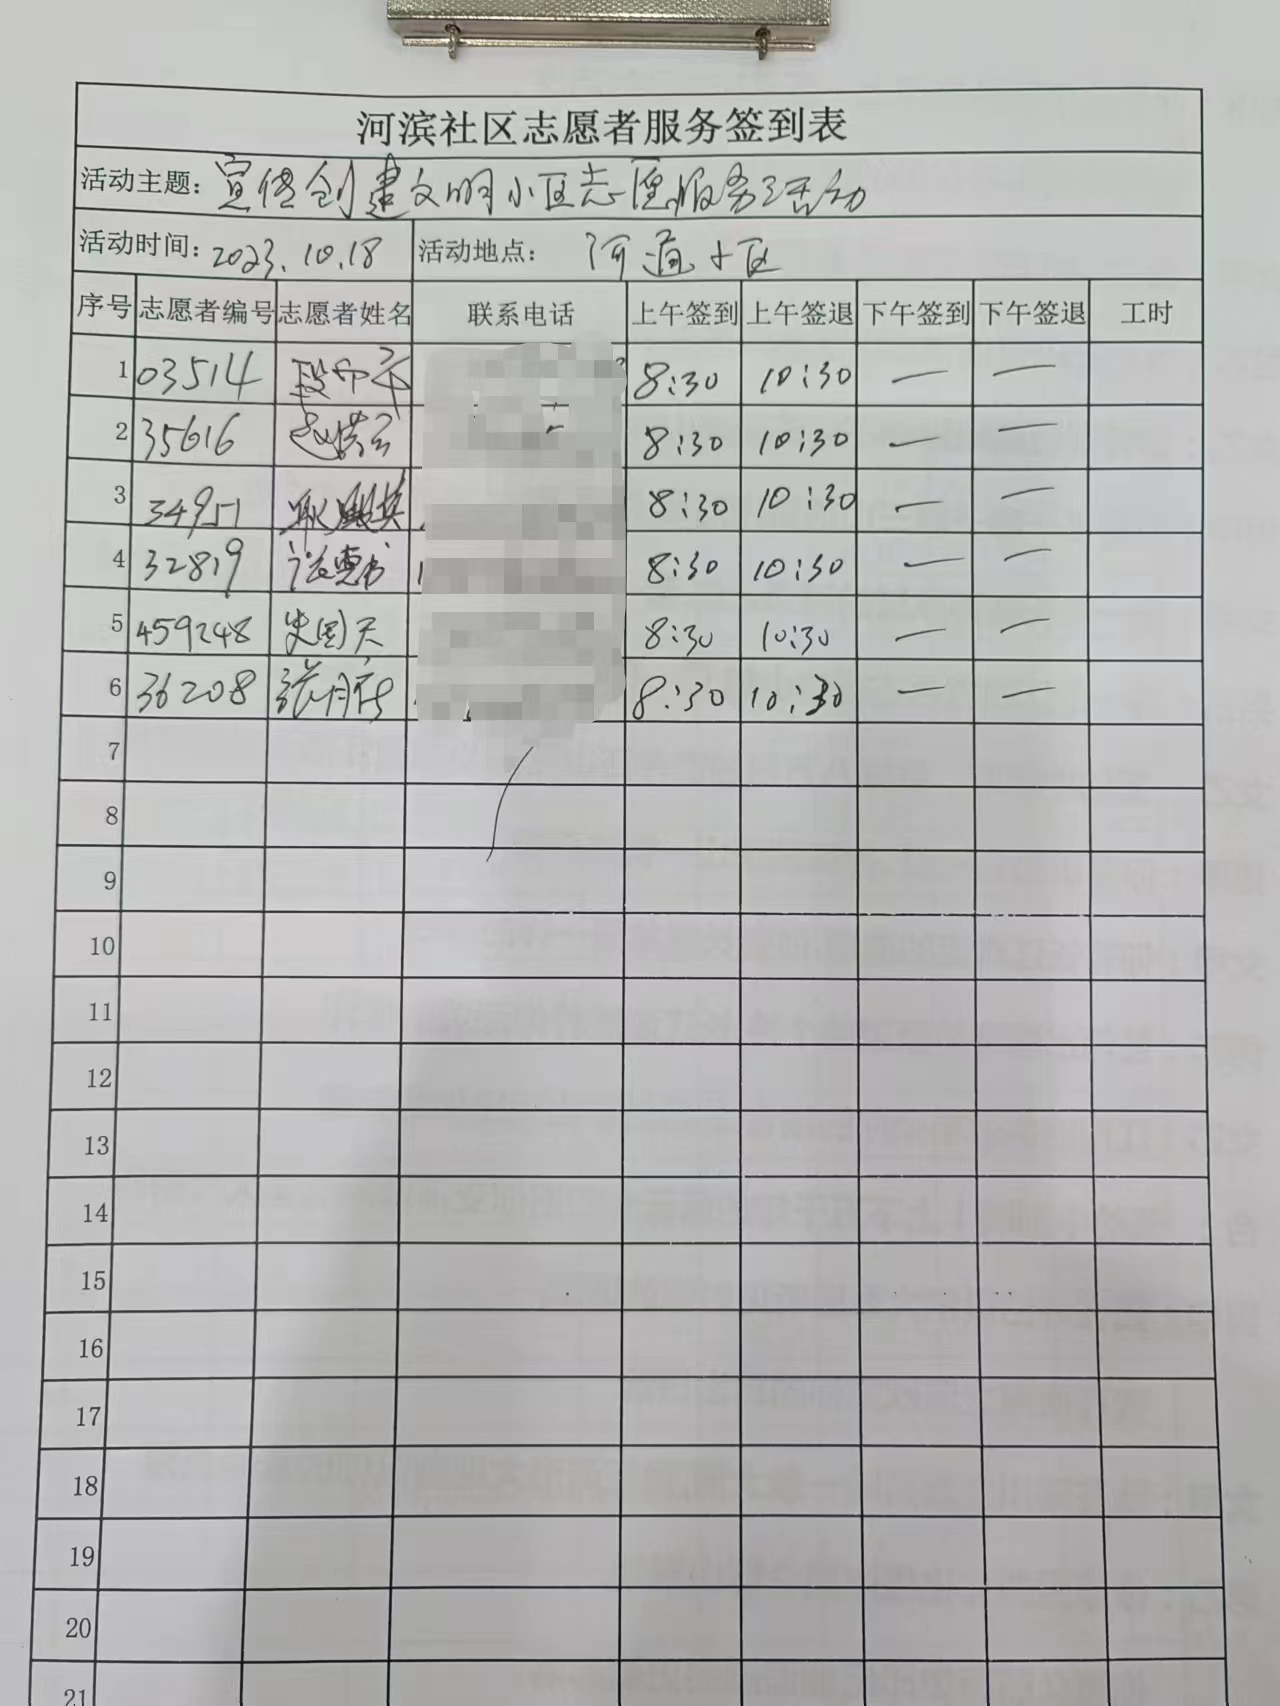 河滨社区志愿者服务签到表
活动主题：宣传创建文明小区志愿服务活动
活动时间：2023.10.18 活动地点：河道小区
序号 志愿者编号 志愿者姓名 联系电话 上午签到 上午签退 下午签到 下午签退 工时
1 03514 8:30 10:30 — —
2 35616 8:30 10:30 — —
3 34951 8:30 10:30 — —
4 32819 8:30 10:30 — —
5 459248 史国天 8:30 10:30 — —
6 36208 8:30 10:30 — —
7
8
9
10
11
12
13
14
15
16
17
18
19
20
21